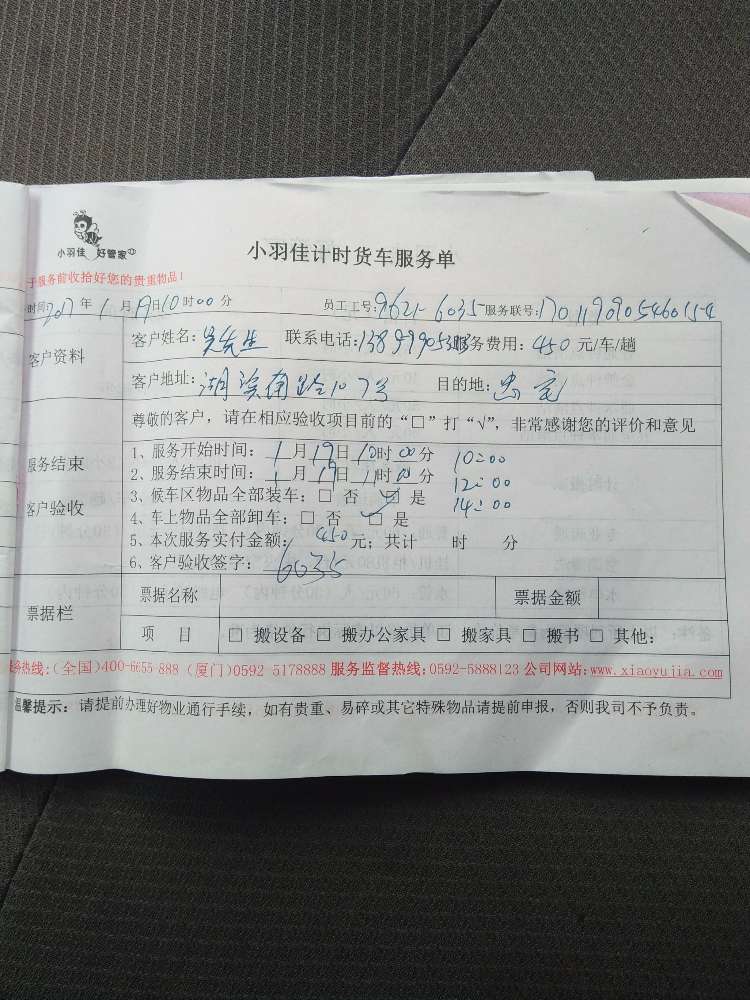 小羽佳 好管家
小羽佳计时货车服务单
于服务前收拾好您的贵重物品!
时间2017年1月19日10时00分 员工工号:9621-6035 服务联号:
客户资料
客户姓名:吴先生 联系电话: 服务费用:450元/车/趟
客户地址:湖滨南路107号 目的地:
尊敬的客户，请在相应验收项目前的“□”打“√”，非常感谢您的评价和意见
服务结束
客户验收
1、服务开始时间:1月19日10时00分 10:00
2、服务结束时间:1月19日11时00分 12:00
3、候车区物品全部装车:□ 否 ☑ 是 14:00
4、车上物品全部卸车:□ 否 ☑ 是
5、本次服务实付金额:450元；共计 时 分
6、客户验收签字:6035
票据栏
票据名称 票据金额
项 目 □ 搬设备 □ 搬办公家具 □ 搬家具 □ 搬书 □ 其他:
服务热线:(全国)400-6655-888 (厦门)0592 5178888 服务监督热线:0592-5888123 公司网站:www.xiaoyujia.com
温馨提示: 请提前办理好物业通行手续，如有贵重、易碎或其它特殊物品请提前申报，否则我司不予负责。